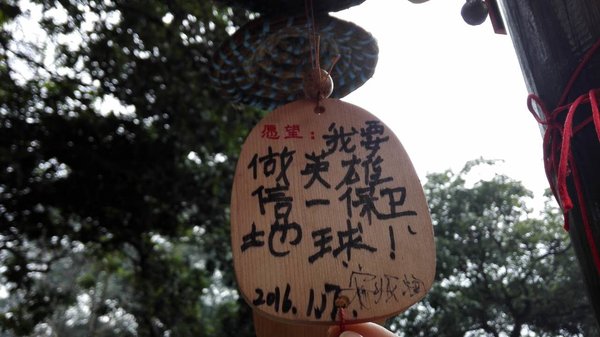 愿望：我要
做英雄
一保卫
地球！
2016.